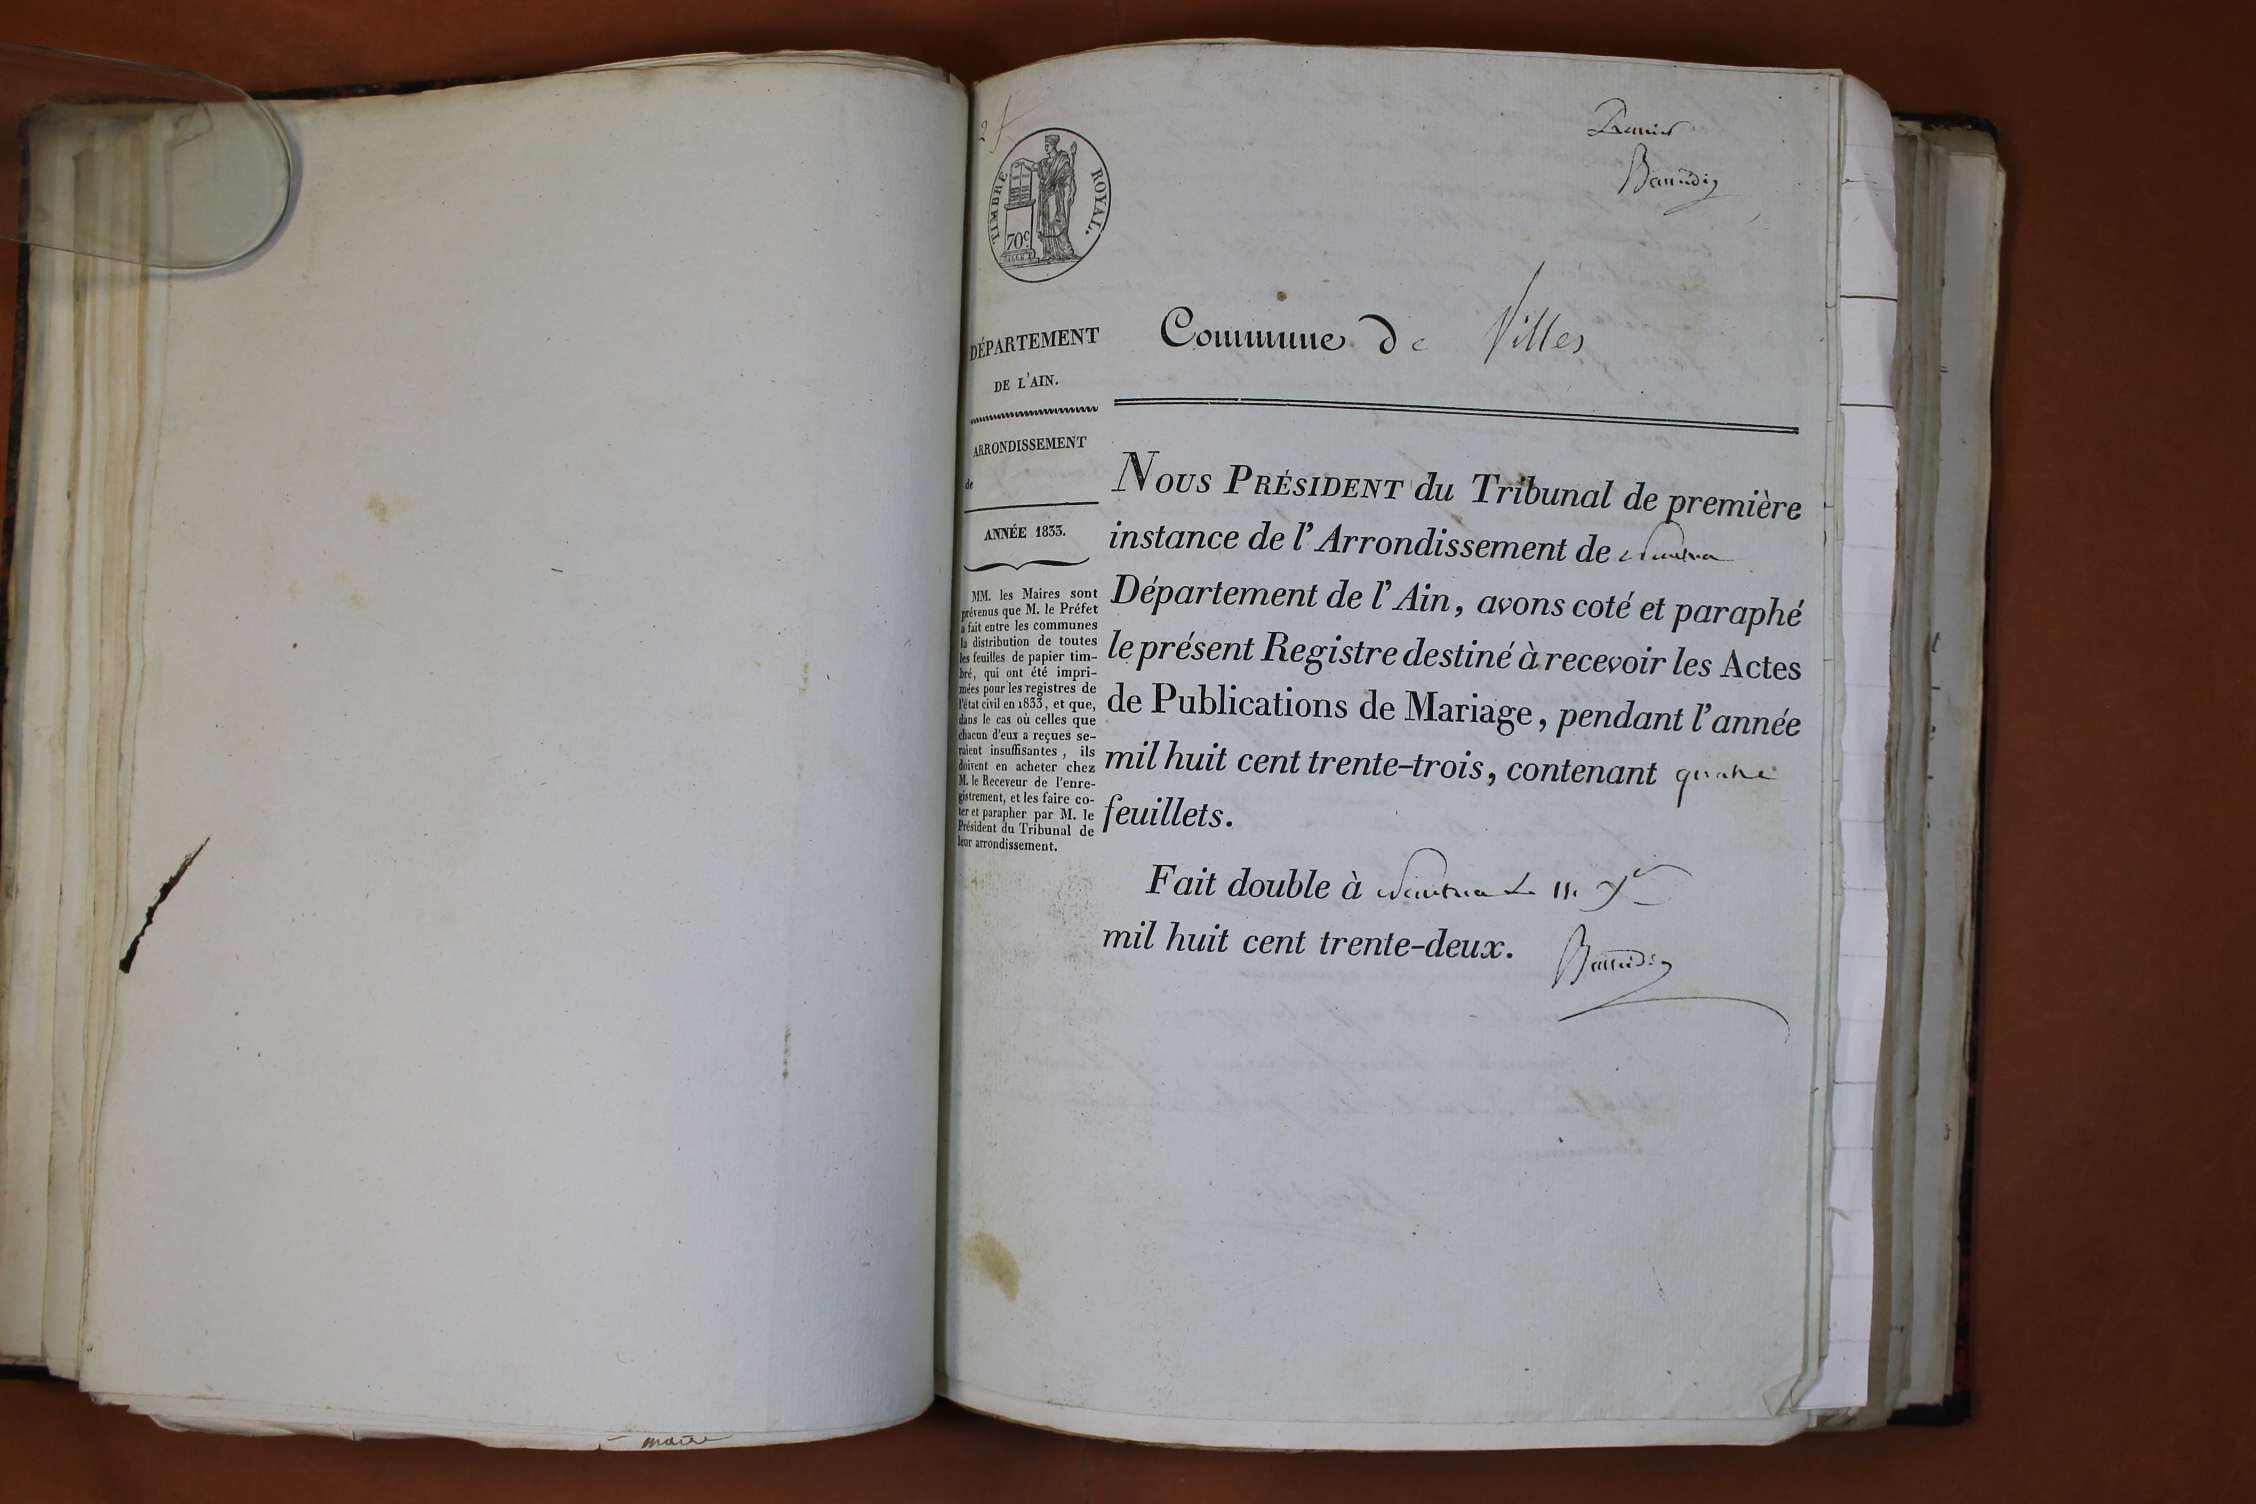 Premier
TIMBRE ROYAL.
70 c
Commune de Villes
DÉPARTEMENT
DE L'AIN.
ARRONDISSEMENT
de
ANNÉE 1833.
MM. les Maires sont
prévenus que M. le Préfet
a fait entre les communes
la distribution de toutes
les feuilles de papier tim-
bré, qui ont été impri-
mées pour les registres de
l'état civil en 1833, et que,
dans le cas où celles que
chacun d'eux a reçues se-
raient insuffisantes, ils
doivent en acheter chez
M. le Receveur de l'enre-
gistrement, et les faire co-
ter et parapher par M. le
Président du Tribunal de
leur arrondissement.
NOUS PRÉSIDENT du Tribunal de première
instance de l'Arrondissement de Nantua
Département de l'Ain, avons coté et paraphé
le présent Registre destiné à recevoir les Actes
de Publications de Mariage, pendant l'année
mil huit cent trente-trois, contenant quatre
feuillets.
Fait double à Nantua le 11. Xr
mil huit cent trente-deux.
maire